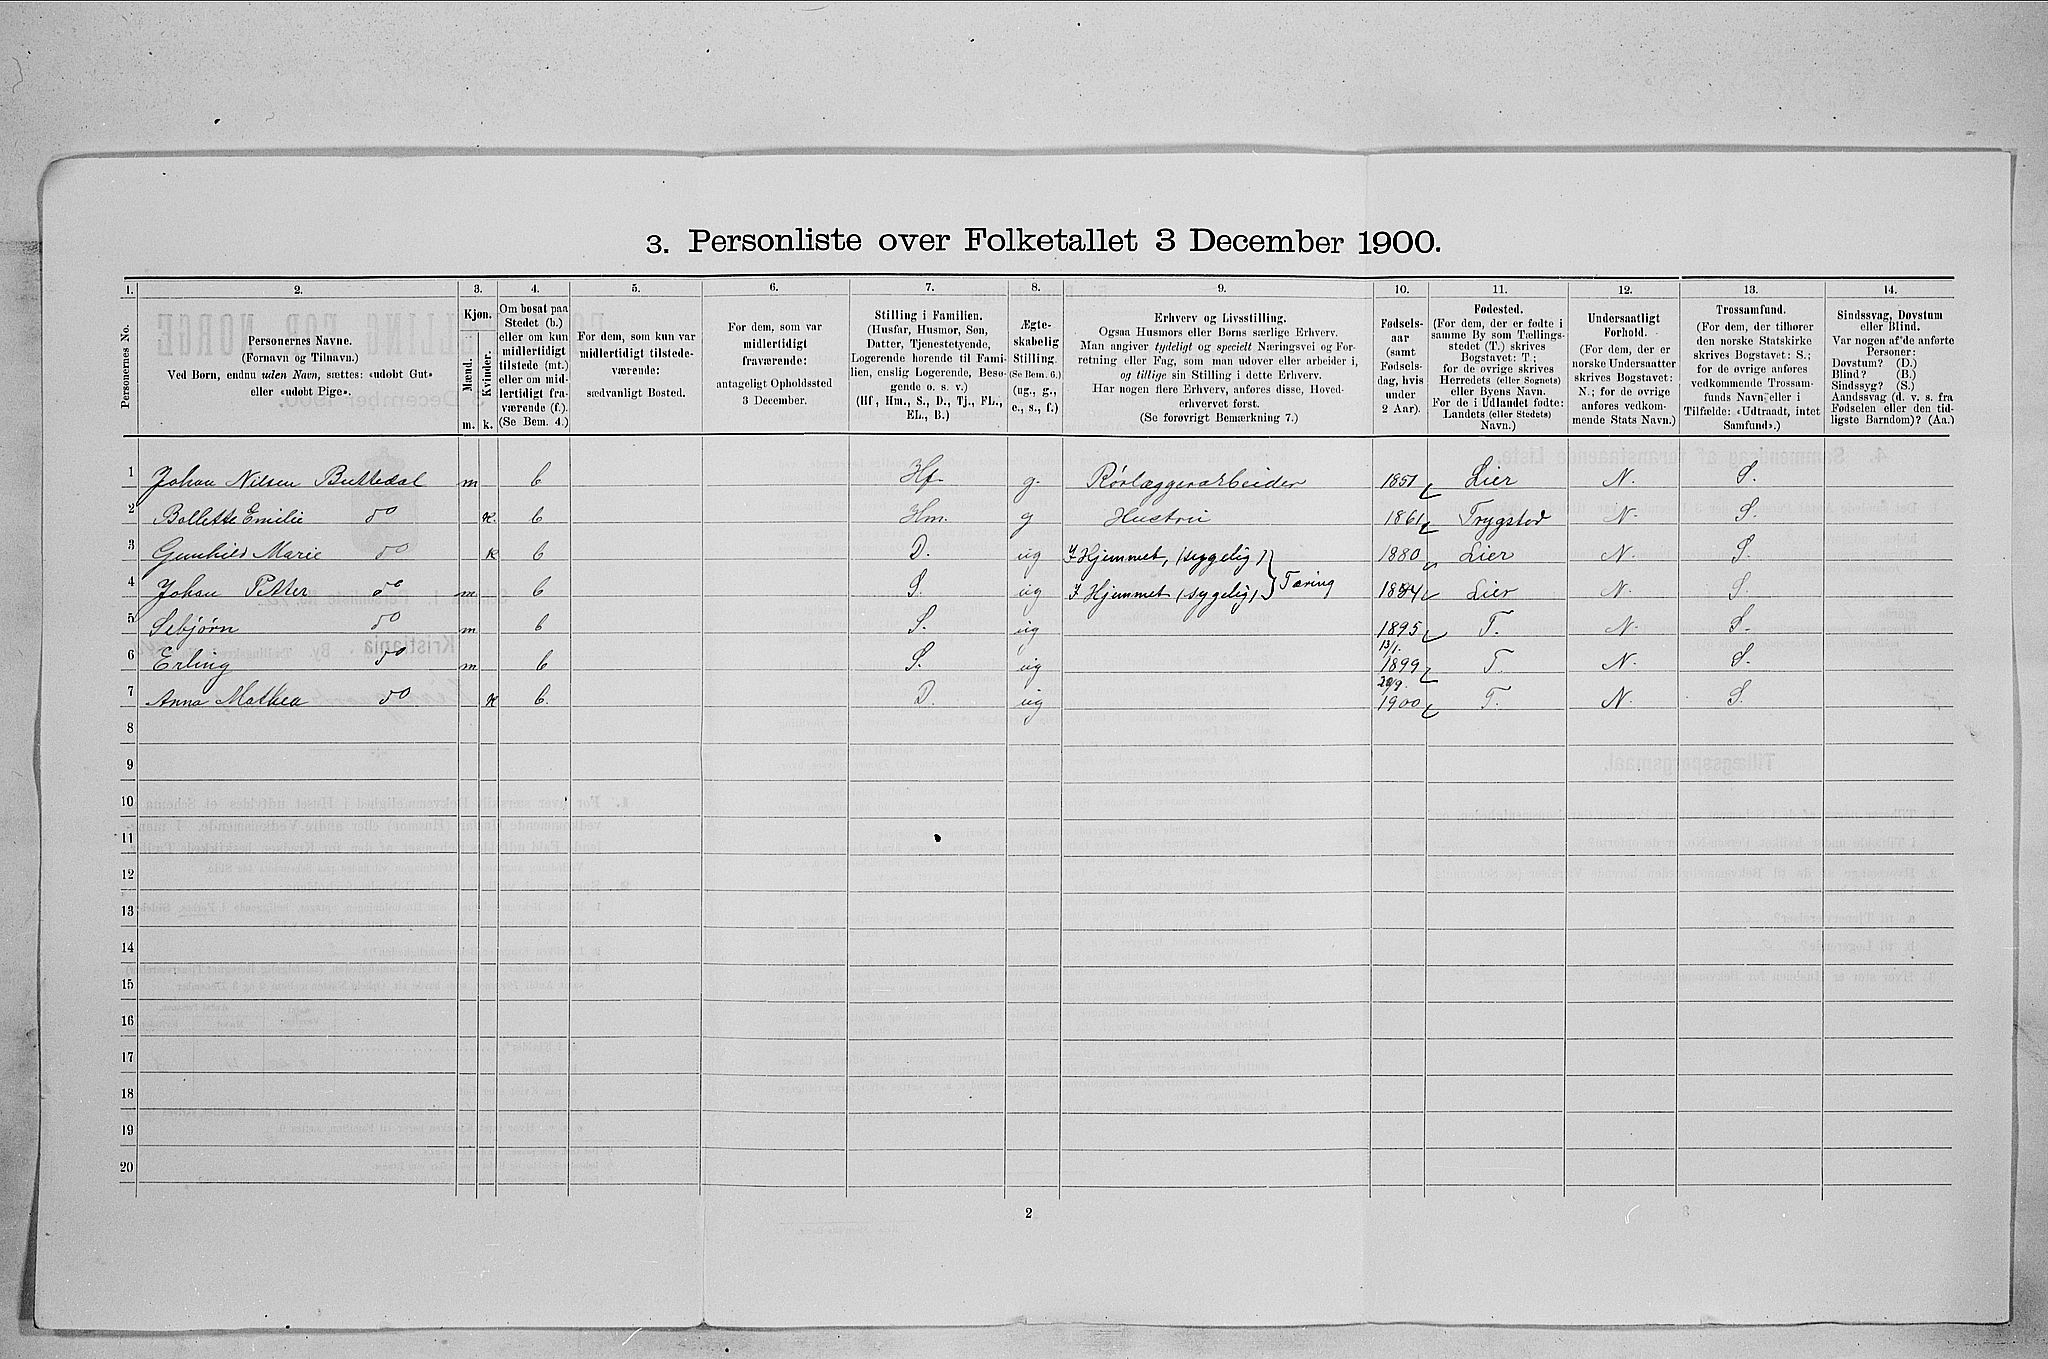 3. Personliste over Folketallet 3 December 1900.
1. 2. 3. 4. 5. 6. 7. 8. 9. 10. 11. 12. 13. 14.
Personernes No.
Personernes Navne.
(Fornavn og Tilnavn.)
Ved Børn, endnu uden Navn, sættes: «udøbt Gut»
eller «udøbt Pige».
Kjøn.
Mænd.
Kvinder.
m. k.
Om bosat paa
Stedet (b.)
eller om kun
midlertidigt
tilstede (mt.)
eller om mid-
lertidigt fra-
værende (f.).
(Se Bem. 4.)
For dem, som kun var
midlertidigt tilstede-
værende:
sædvanligt Bosted.
For dem, som var
midlertidigt
fraværende:
antageligt Opholdssted
3 December.
Stilling i Familien.
(Husfar, Husmor, Søn,
Datter, Tjenestetyende,
Logerende hørende til Fami-
lien, enslig Logerende, Besø-
gende o. s. v.)
(Hf, Hm., S., D., Tj., FL.,
EL., B.)
Ægte-
skabelig
Stilling.
(Se Bem. 6.)
(ug., g.,
e., s., f.)
Erhverv og Livsstilling.
Ogsaa Husmors eller Børns særlige Erhverv.
Man angiver tydeligt og specielt Næringsvei og For-
retning eller Fag, som man udøver eller arbeider i,
og tillige sin Stilling i dette Erhverv.
Har nogen flere Erhverv, anføres disse, Hoved-
erhvervet først.
(Se forøvrigt Bemærkning 7.)
Fødsels-
aar
(samt
Fødsels-
dag, hvis
under
2 Aar).
Fødested.
(For dem, der er fødte i
samme By som Tællings-
stedet (T.) skrives
Bogstavet: T.;
for de øvrige skrives
Herredets (eller Sognets)
eller Byens Navn.
For de i Udlandet fødte:
Landets (eller Stedets)
Navn.)
Undersaatligt
Forhold.
(For dem, der er
norske Undersaatter
skrives Bogstavet:
N.; for de øvrige
anføres vedkom-
mende Stats Navn.)
Trossamfund.
(For dem, der tilhører
den norske Statskirke
skrives Bogstavet: S.;
for de øvrige anføres
vedkommende Trossam-
funds Navn, eller i
Tilfælde: «Udtraadt, intet
Samfund».)
Sindssvag, Døvstum
eller Blind.
Var nogen af de anførte
Personer:
Døvstum? (D.)
Blind? (B.)
Sindssyg? (S.)
Aandssvag (d. v. s. fra
Fødselen eller den tid-
ligste Barndom)? (Aa.)
1 Johan Nilsen Buttedal m b Hf. g. Rørlæggerarbeider 1851 Lier N. S.
2 Bollette Emilie do k. b Hm. g Hustru 1861 Trygstad N. S.
3 Gunhild Marie do k b D. ug I Hjemmet, (sygelig) 1880 Lier N. S.
Tæring
4 Johan Petter do m b S. ug I Hjemmet (sygelig) 1884 Lier N. S.
5 Sebjørn do m b S. ug 1895 T. N. S.
6 Erling do m b S. ug 13/1. 1899 T. N. S.
7 Anna Mathea do k b. D. ug 1900 T. N. S.
8
9
10
11
12
13
14
15
16
17
18
19
20
2